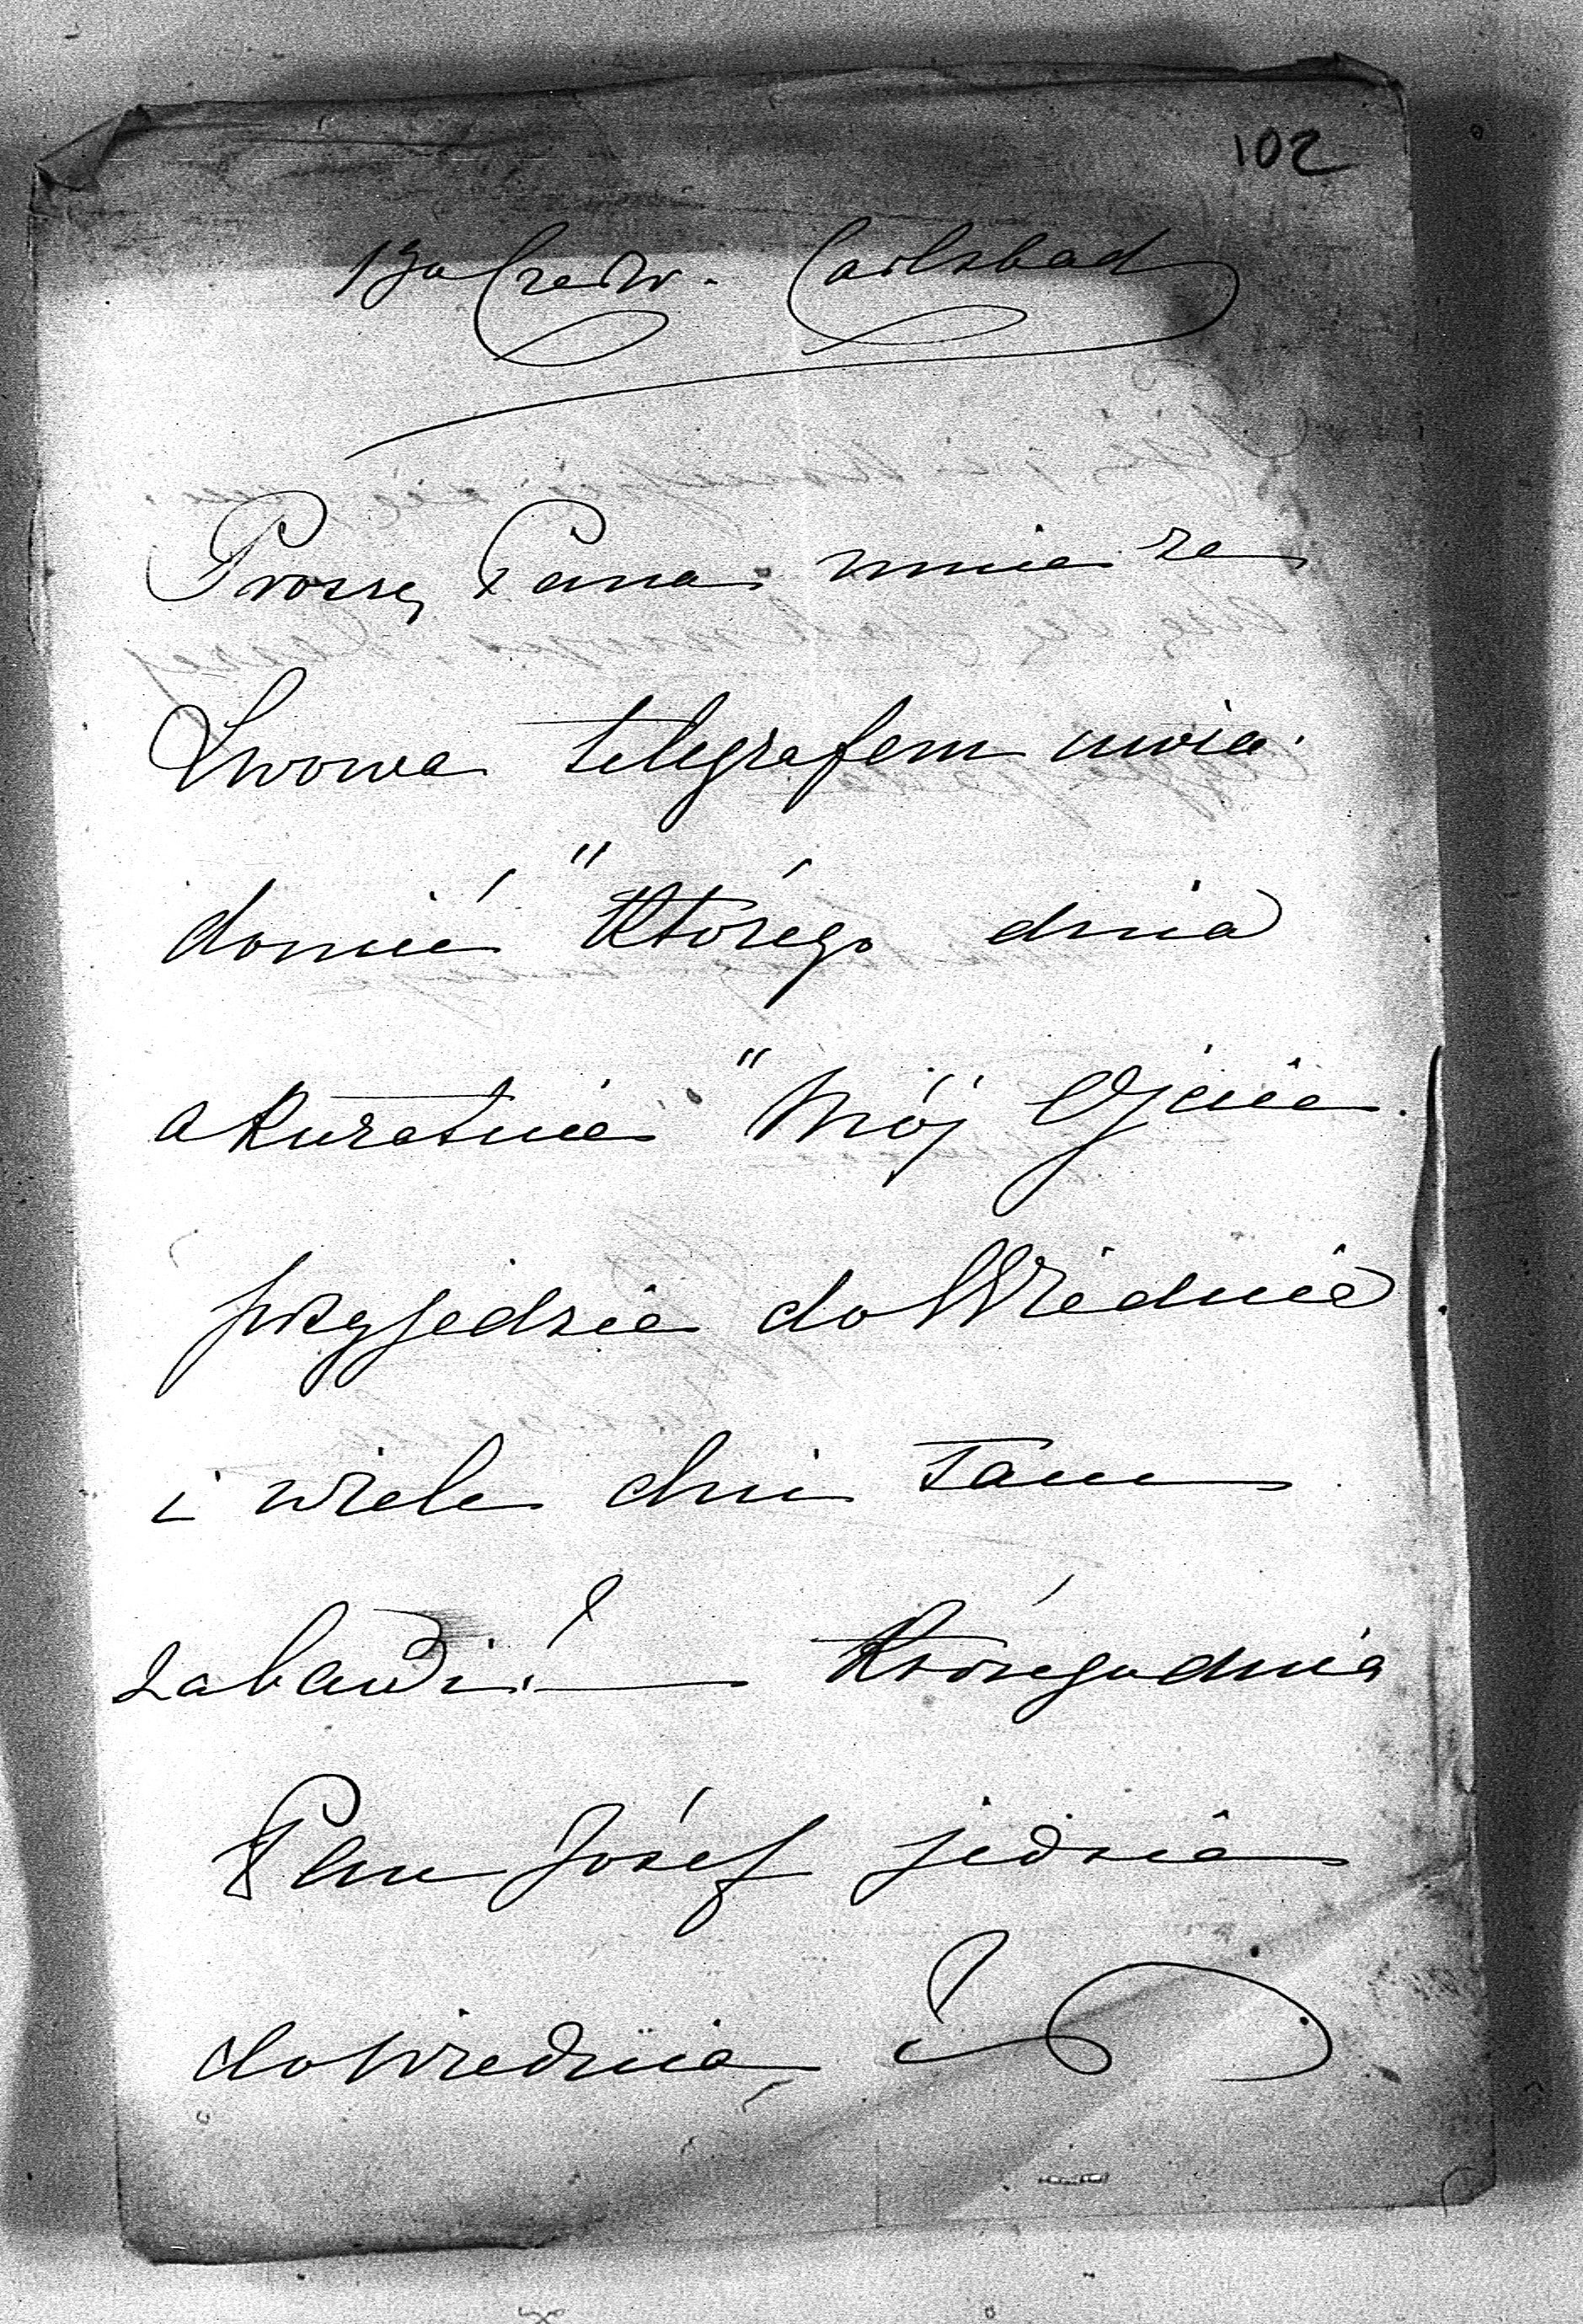 102
13go Czerw. Carlsbad
Proszę Pana mnie ze
Lwowa telegrafem uwia-
domić "którego dnia
akuratnie" Mój Ojciec
przyjedzie do Wiednia
i wiele dni tam
zabawi! — któregodnia
Pan Józef jedzie
do Wiednia